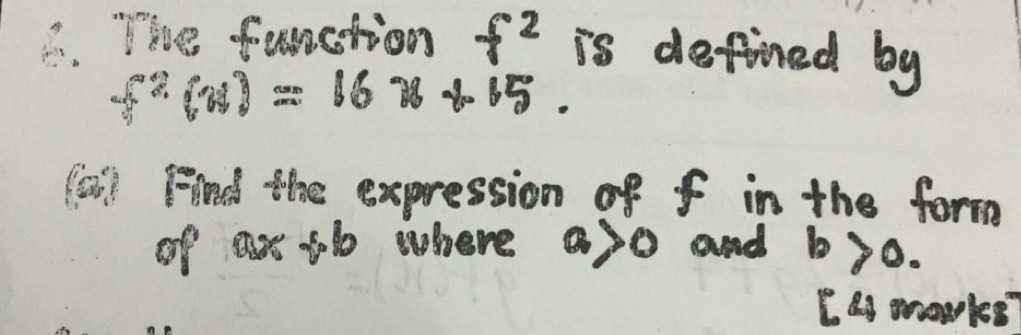 6. The function f² is defined by
f²(x) = 16x + 15.
(a) Find the expression of f in the form
of ax + b where a>0 and b>0.
[4 marks]